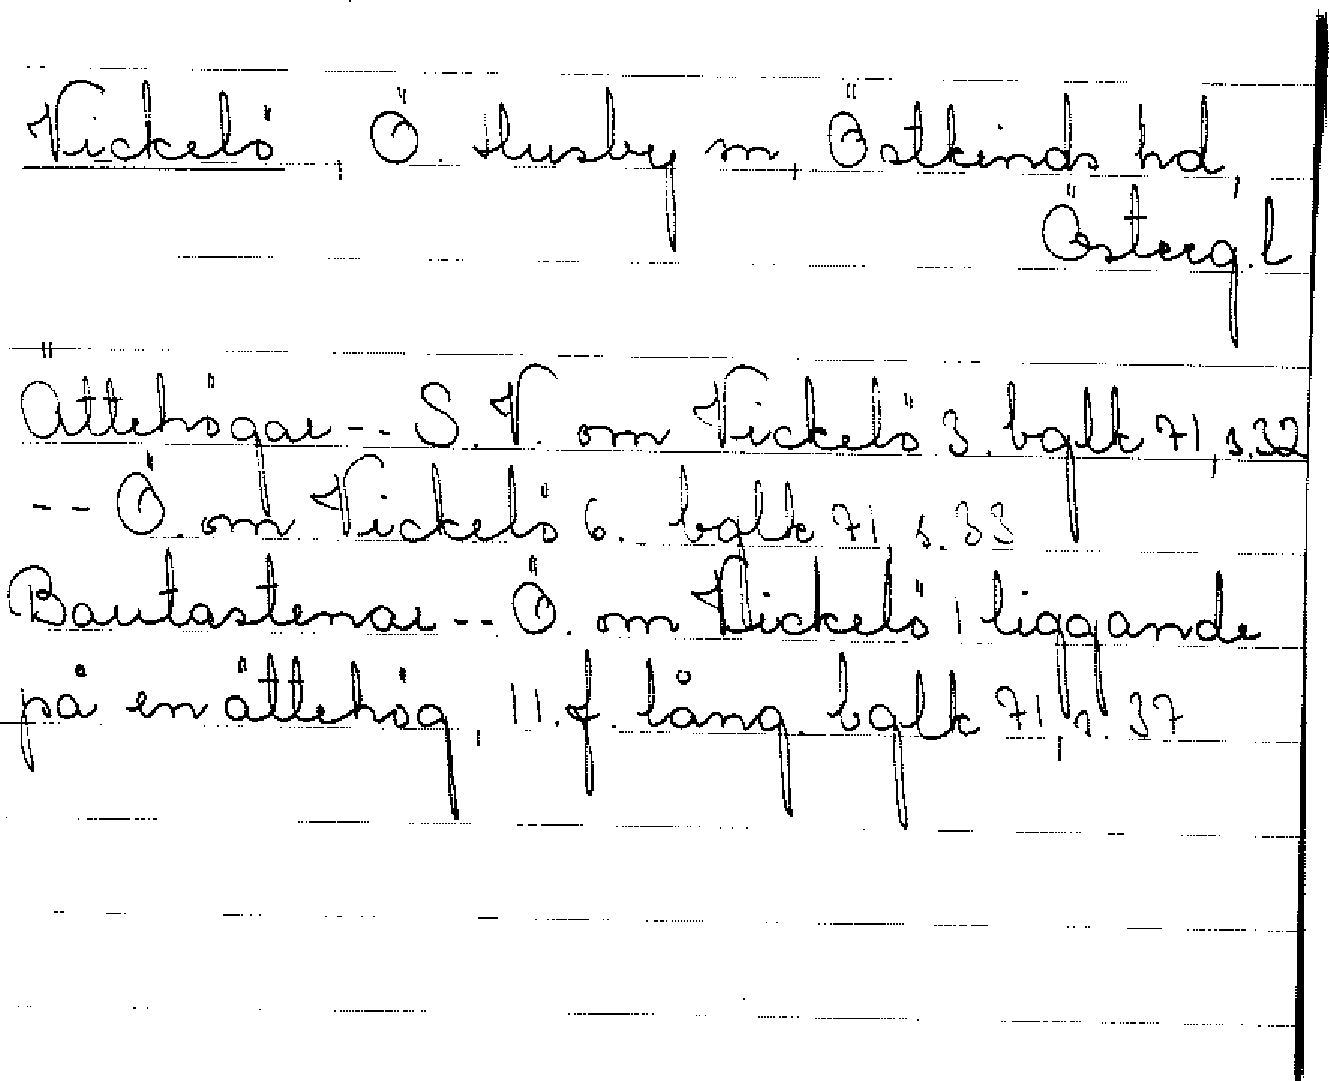 Vickelsö, Ö. Husby sn, Östkinds hd,
Österg. l
Ättehögar -- S.V. om Vickelsö 3. bglk 71, s. 32
-- Ö. om Vickelsö 6. bglk 71 s. 33
Bautastenar -- Ö. om Vickelsö 1 liggande
på en ättehög, 11. f. lång. bglk 71, s. 37